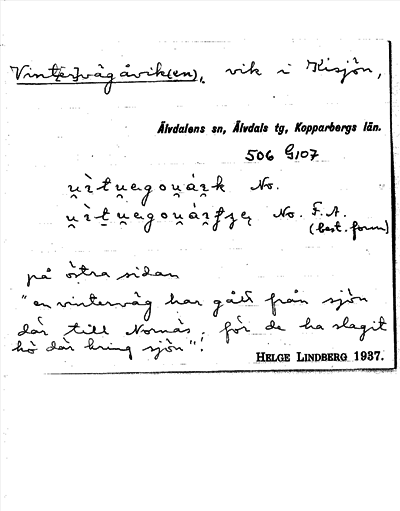 Vint[er]vägåvik(en), vik i Kisjön,
Älvdalens sn, Älvdals tg, Kopparbergs län.
506 G107
No.
No. F.A.
(best. form)
på östra sidan
"en vinterväg har gått från sjön
där till Nornäs, för de ha slagit
hö där kring sjön".
HELGE LINDBERG 1937.